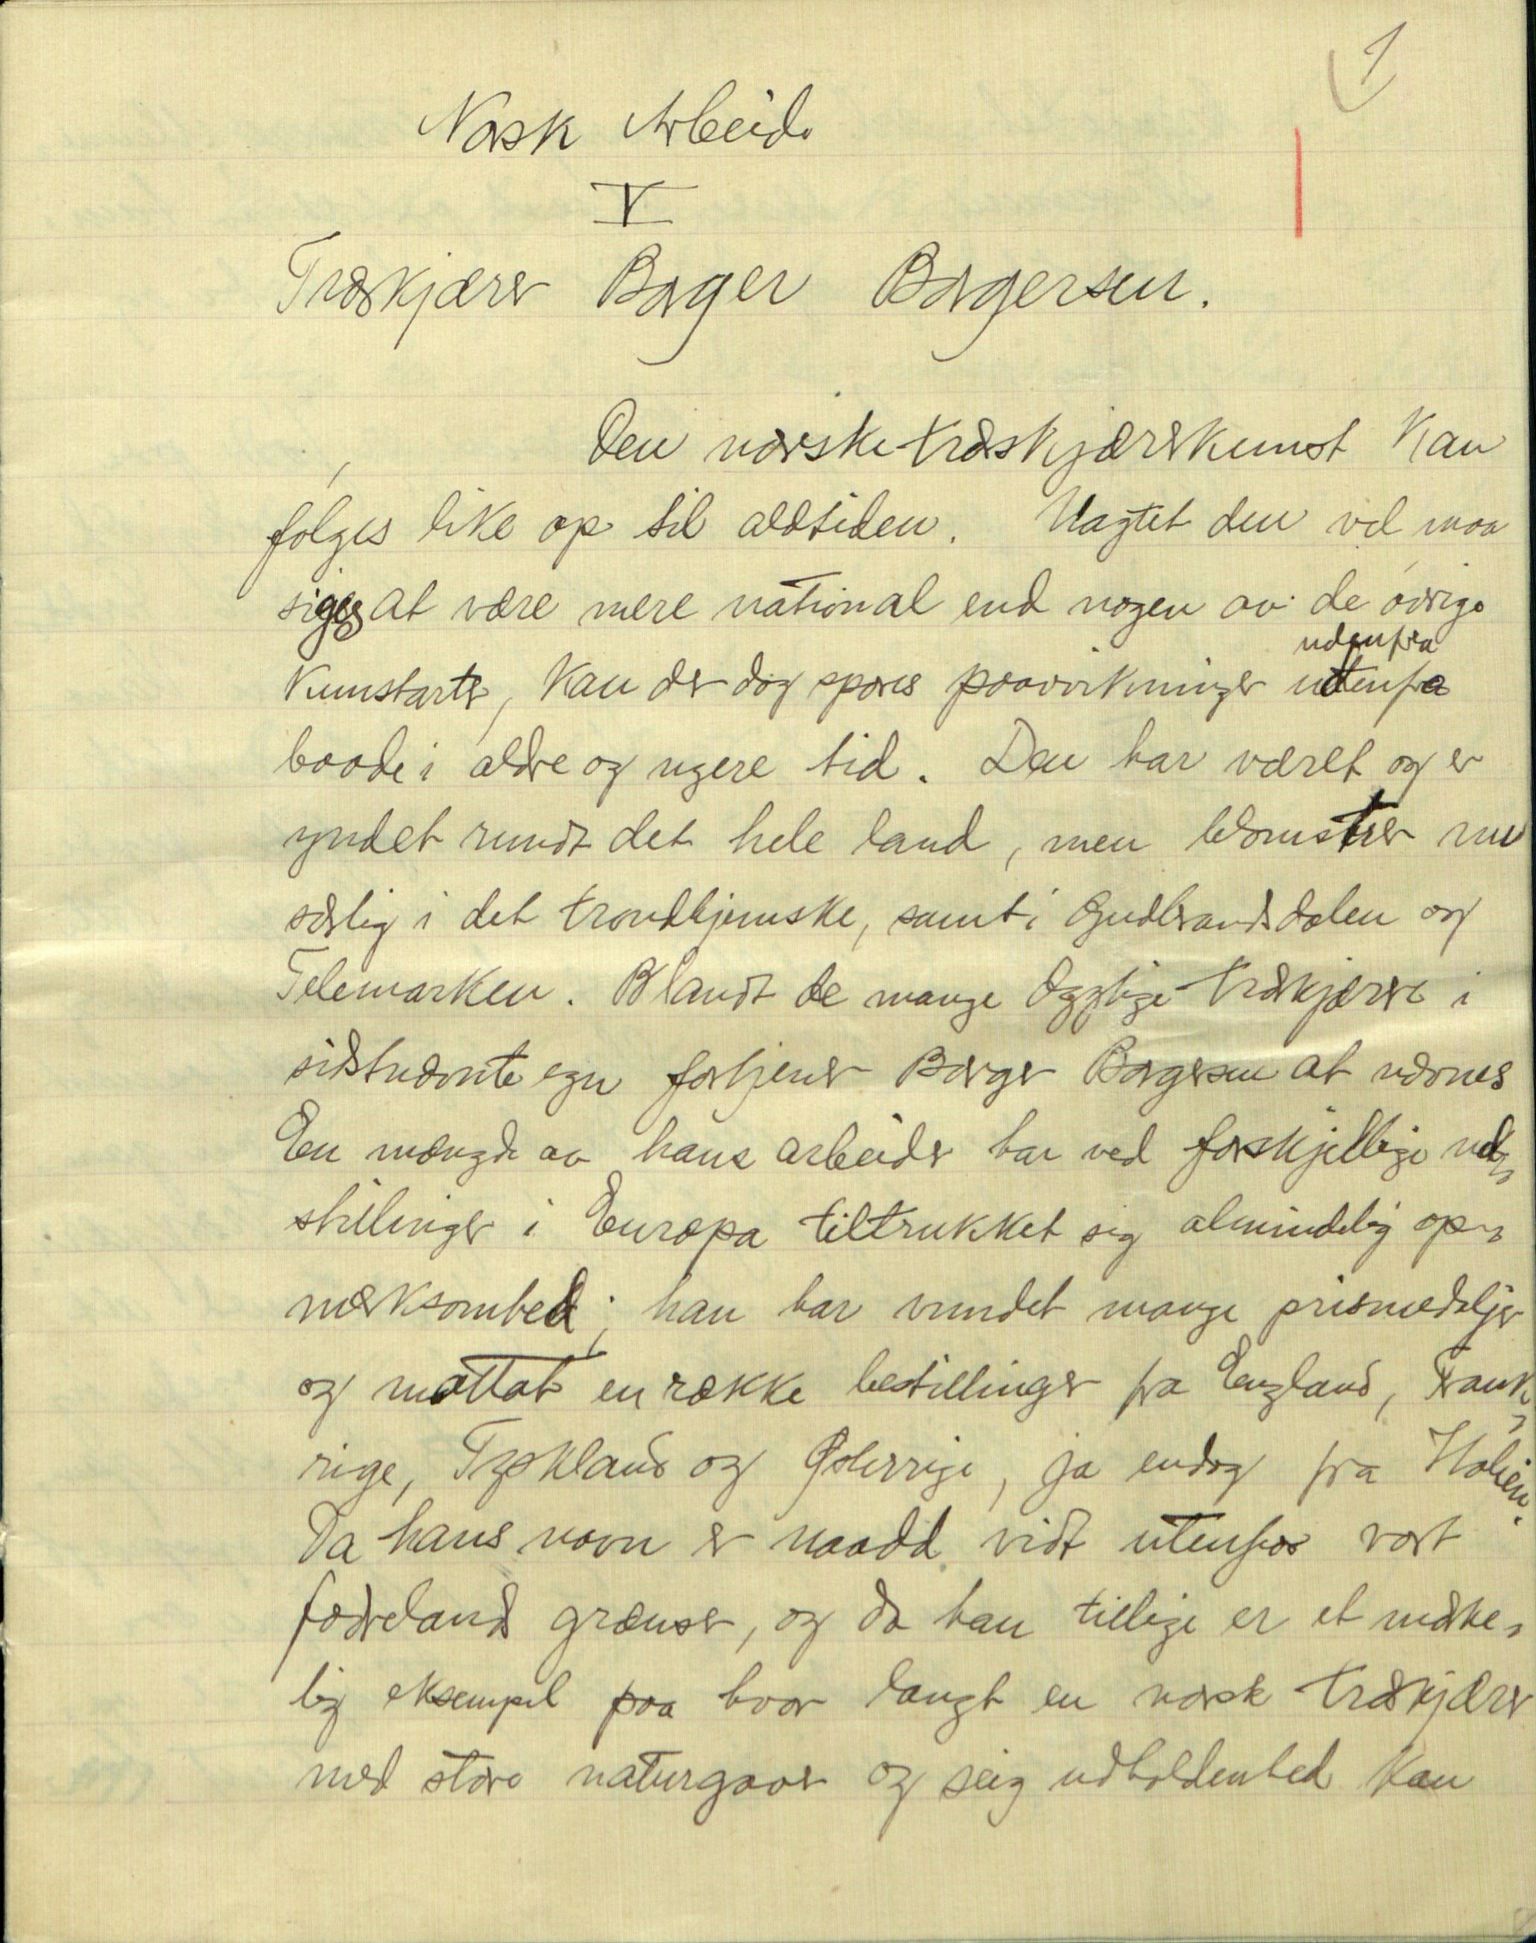 1
Norsk Arbeide
V
Træskjærer Borger Borgersen.
Den norske træskjærerkunst kan
følges like op til oldtiden. Uagtet den vel maa
siges at være mere national end nogen av de øvrige
udenfra
kunstarter, kan der dog spores paavirkninger utenfra
baade i ældre og nyere tid. Den har været og er
yndet rundt det hele land, men blomstrer nu
særlig i det trondhjemske, samt i Gudbrandsdalen og
Telemarken. Blandt de mange dygtige træskjærere i
sidstnævnte egn fortjener Borger Borgersen at nævnes
En mængde av hans arbeider har ved forskjellige ud-
stillinger i Europa tiltrukket sig almindelig op-
mærksomhed; han har vundet mange prismedaljer
og mottat en række bestillinger fra England, Frank-
rige, Tyskland og Østerrige, ja endog fra Italien.
Da hans navn er naadd vidt utenfor vort
fædrelands grænser, og da han tillige er et mærke-
lig eksempel paa hvor langt en norsk træskjærer
med store naturgaver og seig udholdenhed kan